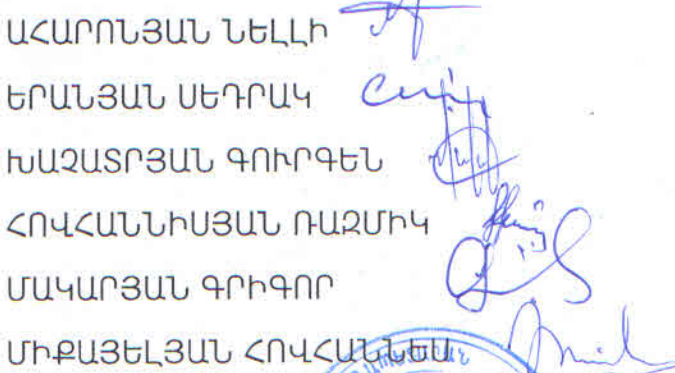 ԱՀԱՐՈՆՅԱՆ ՆԵԼԼԻ
ԵՐԱՆՅԱՆ ՍԵԴՐԱԿ
ԽԱՉԱՏՐՅԱՆ ԳՈՒՐԳԵՆ
ՀՈՎՀԱՆՆԻՍՅԱՆ ՌԱԶՄԻԿ
ՄԱԿԱՐՅԱՆ ԳՐԻԳՈՐ
ՄԻՔԱՅԵԼՅԱՆ ՀՈՎՀԱՆՆԵՍ